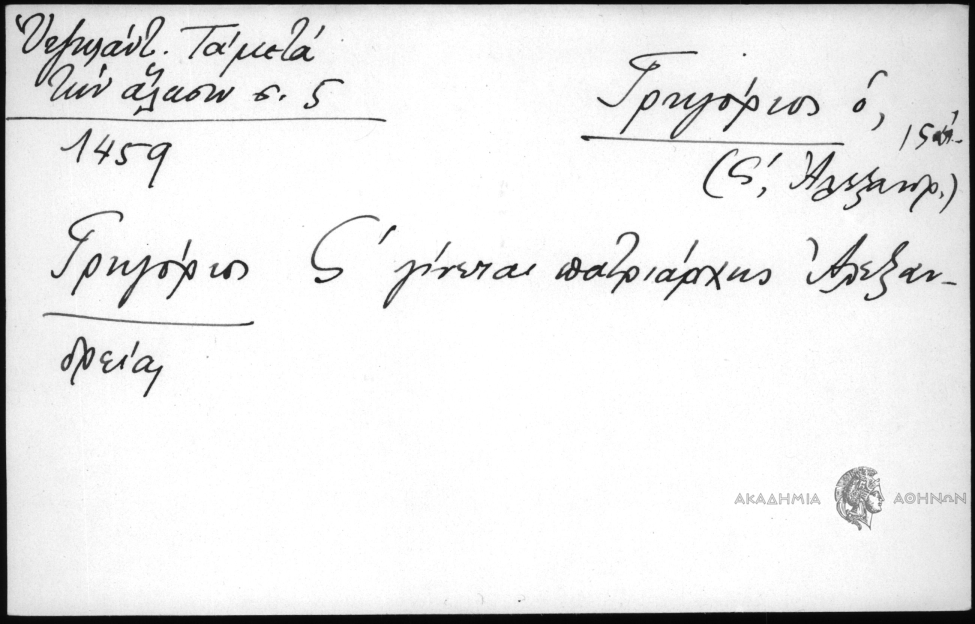 Ὑψηλάντ. Τά μετά
τήν ἅλωσιν σ. ς
1459
Γρηγόριος ὁ,
(ς΄, Ἀλεξανδρ.)
Γρηγόριος ς΄ γίνεται πατριάρχης Ἀλεξαν-
δρείας
ΑΚΑΔΗΜΙΑ ΑΘΗΝΩΝ